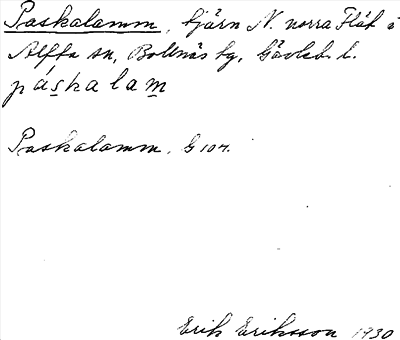 Paskalamm, tjärn N. norra Flät i
Alfta sn, Bollnäs tg, Gävleb. l.
páskalam
Paskalamm, G 107.
Erik Eriksson 1930